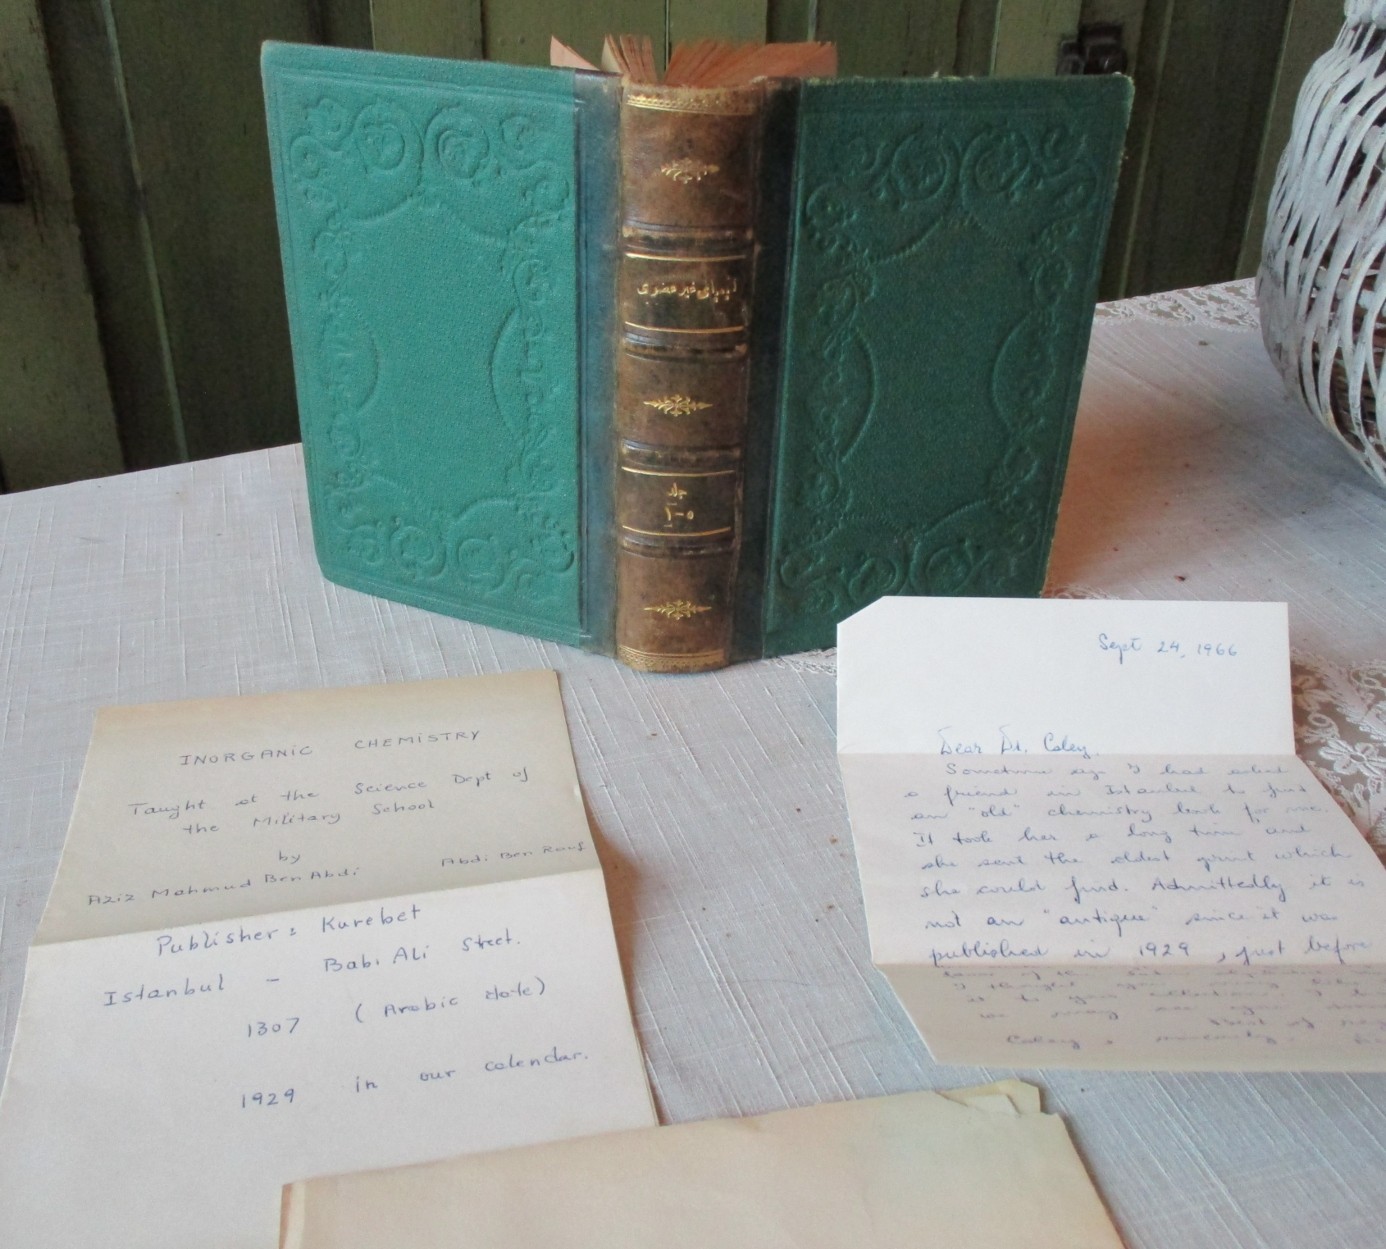 كيمياى غير عضوى
جلد
١-٥
INORGANIC CHEMISTRY
Taught at the Science Dept of
the Military School
by
Aziz Mahmud Ben Abdi Abdi Ben Rauf
Publisher: Kurebet
Istanbul - Babi Ali Street.
1307 (Arabic date)
1929 in our calendar.
Sept 24, 1966
Dear Dr. Coley,
Sometime ago I had asked
a friend in Istanbul to find
an "old" chemistry book for me.
It took her a long time and
she sent the oldest print which
she could find. Admittedly it is
not an "antique" since it was
published in 1929, just before
I thought you may like
it to your attention. I
we may see you
Best of
Coley, sincerely,